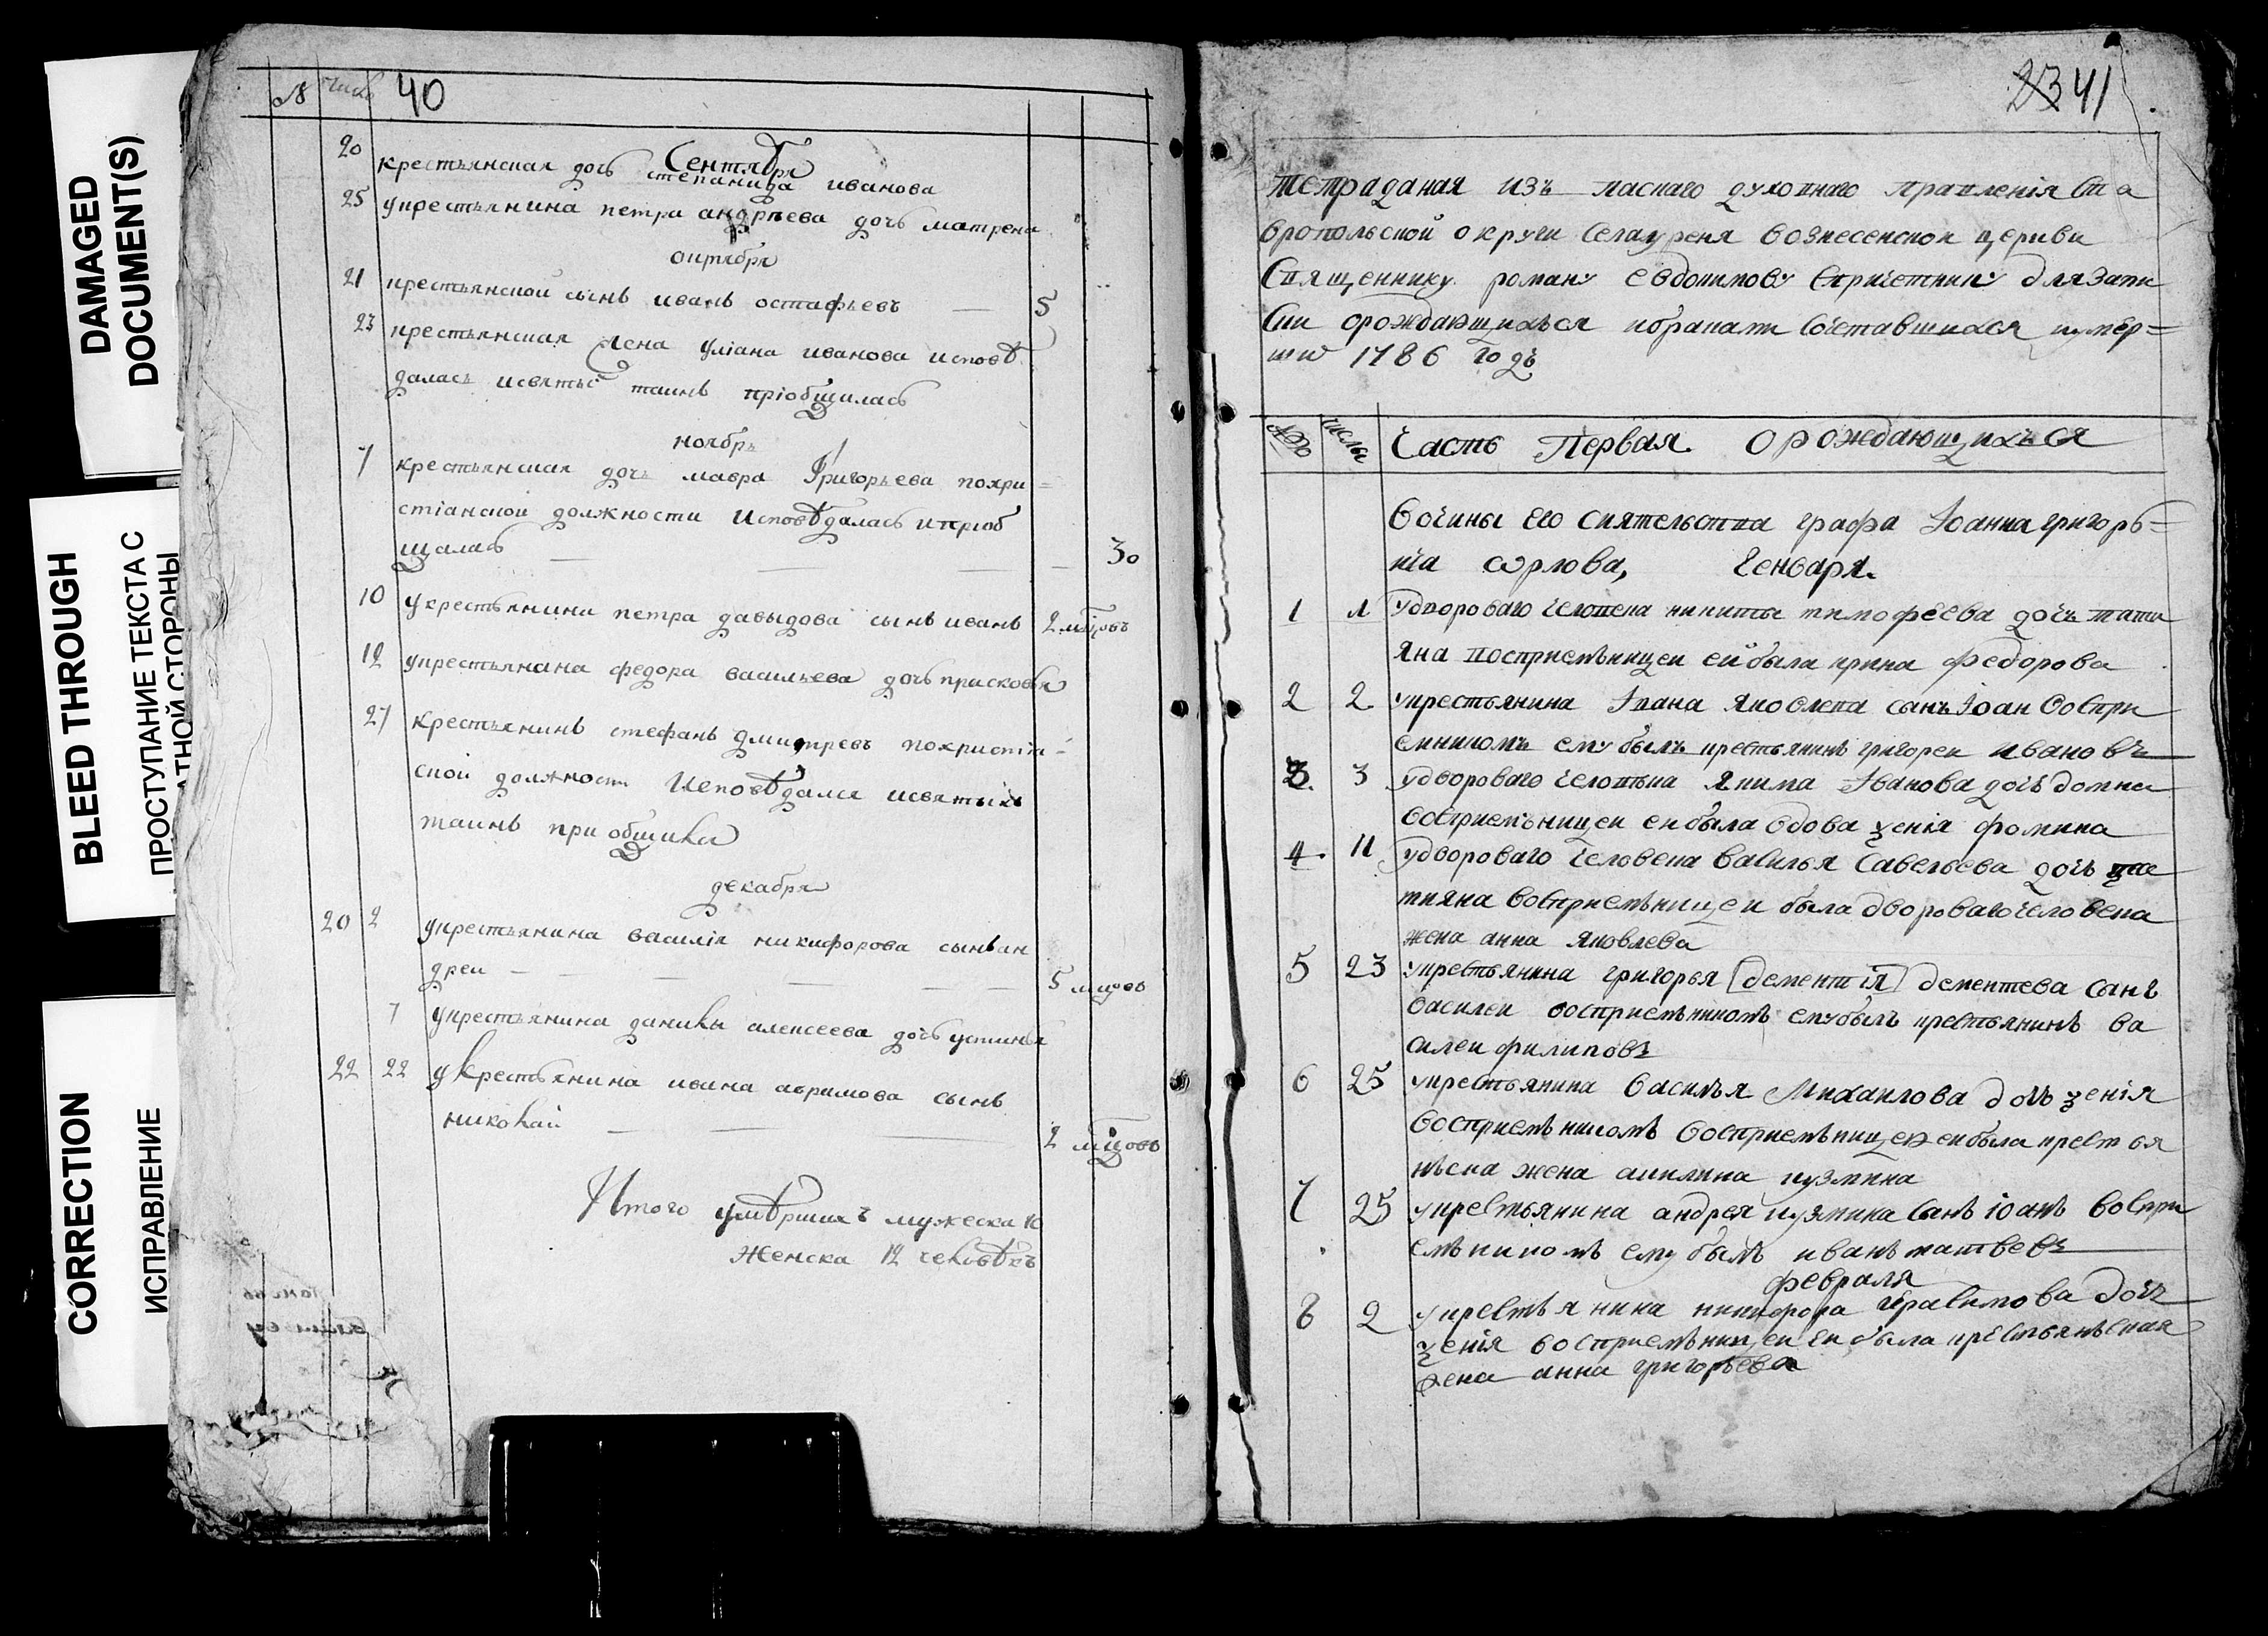 DAMAGED
DOCUMENT(S)
BLEED THROUGH
ПРОСТУПАНИЕ ТЕКСТА С
АТНОЙ СТОРОНЫ
CORRECTION
ИСПРАВЛЕНИЕ
№ числ 40
Сентября
20 крестьянская дочь степанида иванова
25 укрестьянина петра андрѣева дочь матрена
октября
21 крестьянской сынъ иванъ остафьевъ — 5
23 крестьянская жена уліана иванова исповѣ
далась исвятыхъ таинъ пріобщилась
ноябрь
7 крестьянская дочь мавра Григорьева похри=
стіанской должности Исповѣдалась ипріоб
щалась — — — — 30
10 укрестьянина петра давыдова сынъ иванъ 2 мѣцовъ
12 укрестьянина федора васильева дочь прасковья
27 крестьянинъ стефанъ дмитревъ похристіа-
ской должности Исповѣдался исвятыхъ
таинъ приобщился
декабря
20 2 укрестьянина василія никифорова сынъ ан
дреи — — — — — — 5 мцовъ
7 укрестьянина данилы алексеева дочь устинья
22 22 укрестьянина ивана абрамова сынъ
николай — — — 2 мцовъ
Итого умѣршихъ мужеска 10
Женска 12 человѣкъ
23 41
тетрадь даная изъ каснаго духовнаго правленія Ста
вропольской округи Села уреня вознесенской церкви
Священнику роману евдокимову спричетники для запи
Ски орождающихься ибраками Сочетавшихся иумер=
ши 1786 годъ
№ числы Часть Первая орождающихъся
Вочины его сиятельства графа Іоанна григорь=
ича ѡрлова, Генваря.
1 1 удвороваго человека никиты тимофеева дочь тати
яна восприемьницеи еи была ирина федорова
2 2 укрестьянина Ивана Яковлева сынъ Іоан воспри
емником ему былъ крестьянинъ григореи ивановъ
3. 3 удвороваго человѣка Якима Иванова дочь домна
восприемьницеи еи была вдова ѯенія фомина
4. 11 удвороваго человека василья Савельева дочь та
тияна восприемьницеи была двороваго человека
жена анна яковлева
5 23 укрестьянина григорья дементія дементева сынъ
василеи восприемьникомъ ему былъ крестьянинъ ва
силеи филиповъ
6 25 укрестьянина василья Михаилова дочь ѯенія
восприемьникомъ восприемьницеи еи была крестья
ньска жена акилина кузмина
7 25 укрестьянина андрея кузмина сынъ іоанъ воспри
емьникомъ ему былъ иванъ матвевъ
февраля
8 2 укрестьянина никифора герасимова дочь
ѯенія восприемьницеи еи была крестьяньская
жена анна григорьева